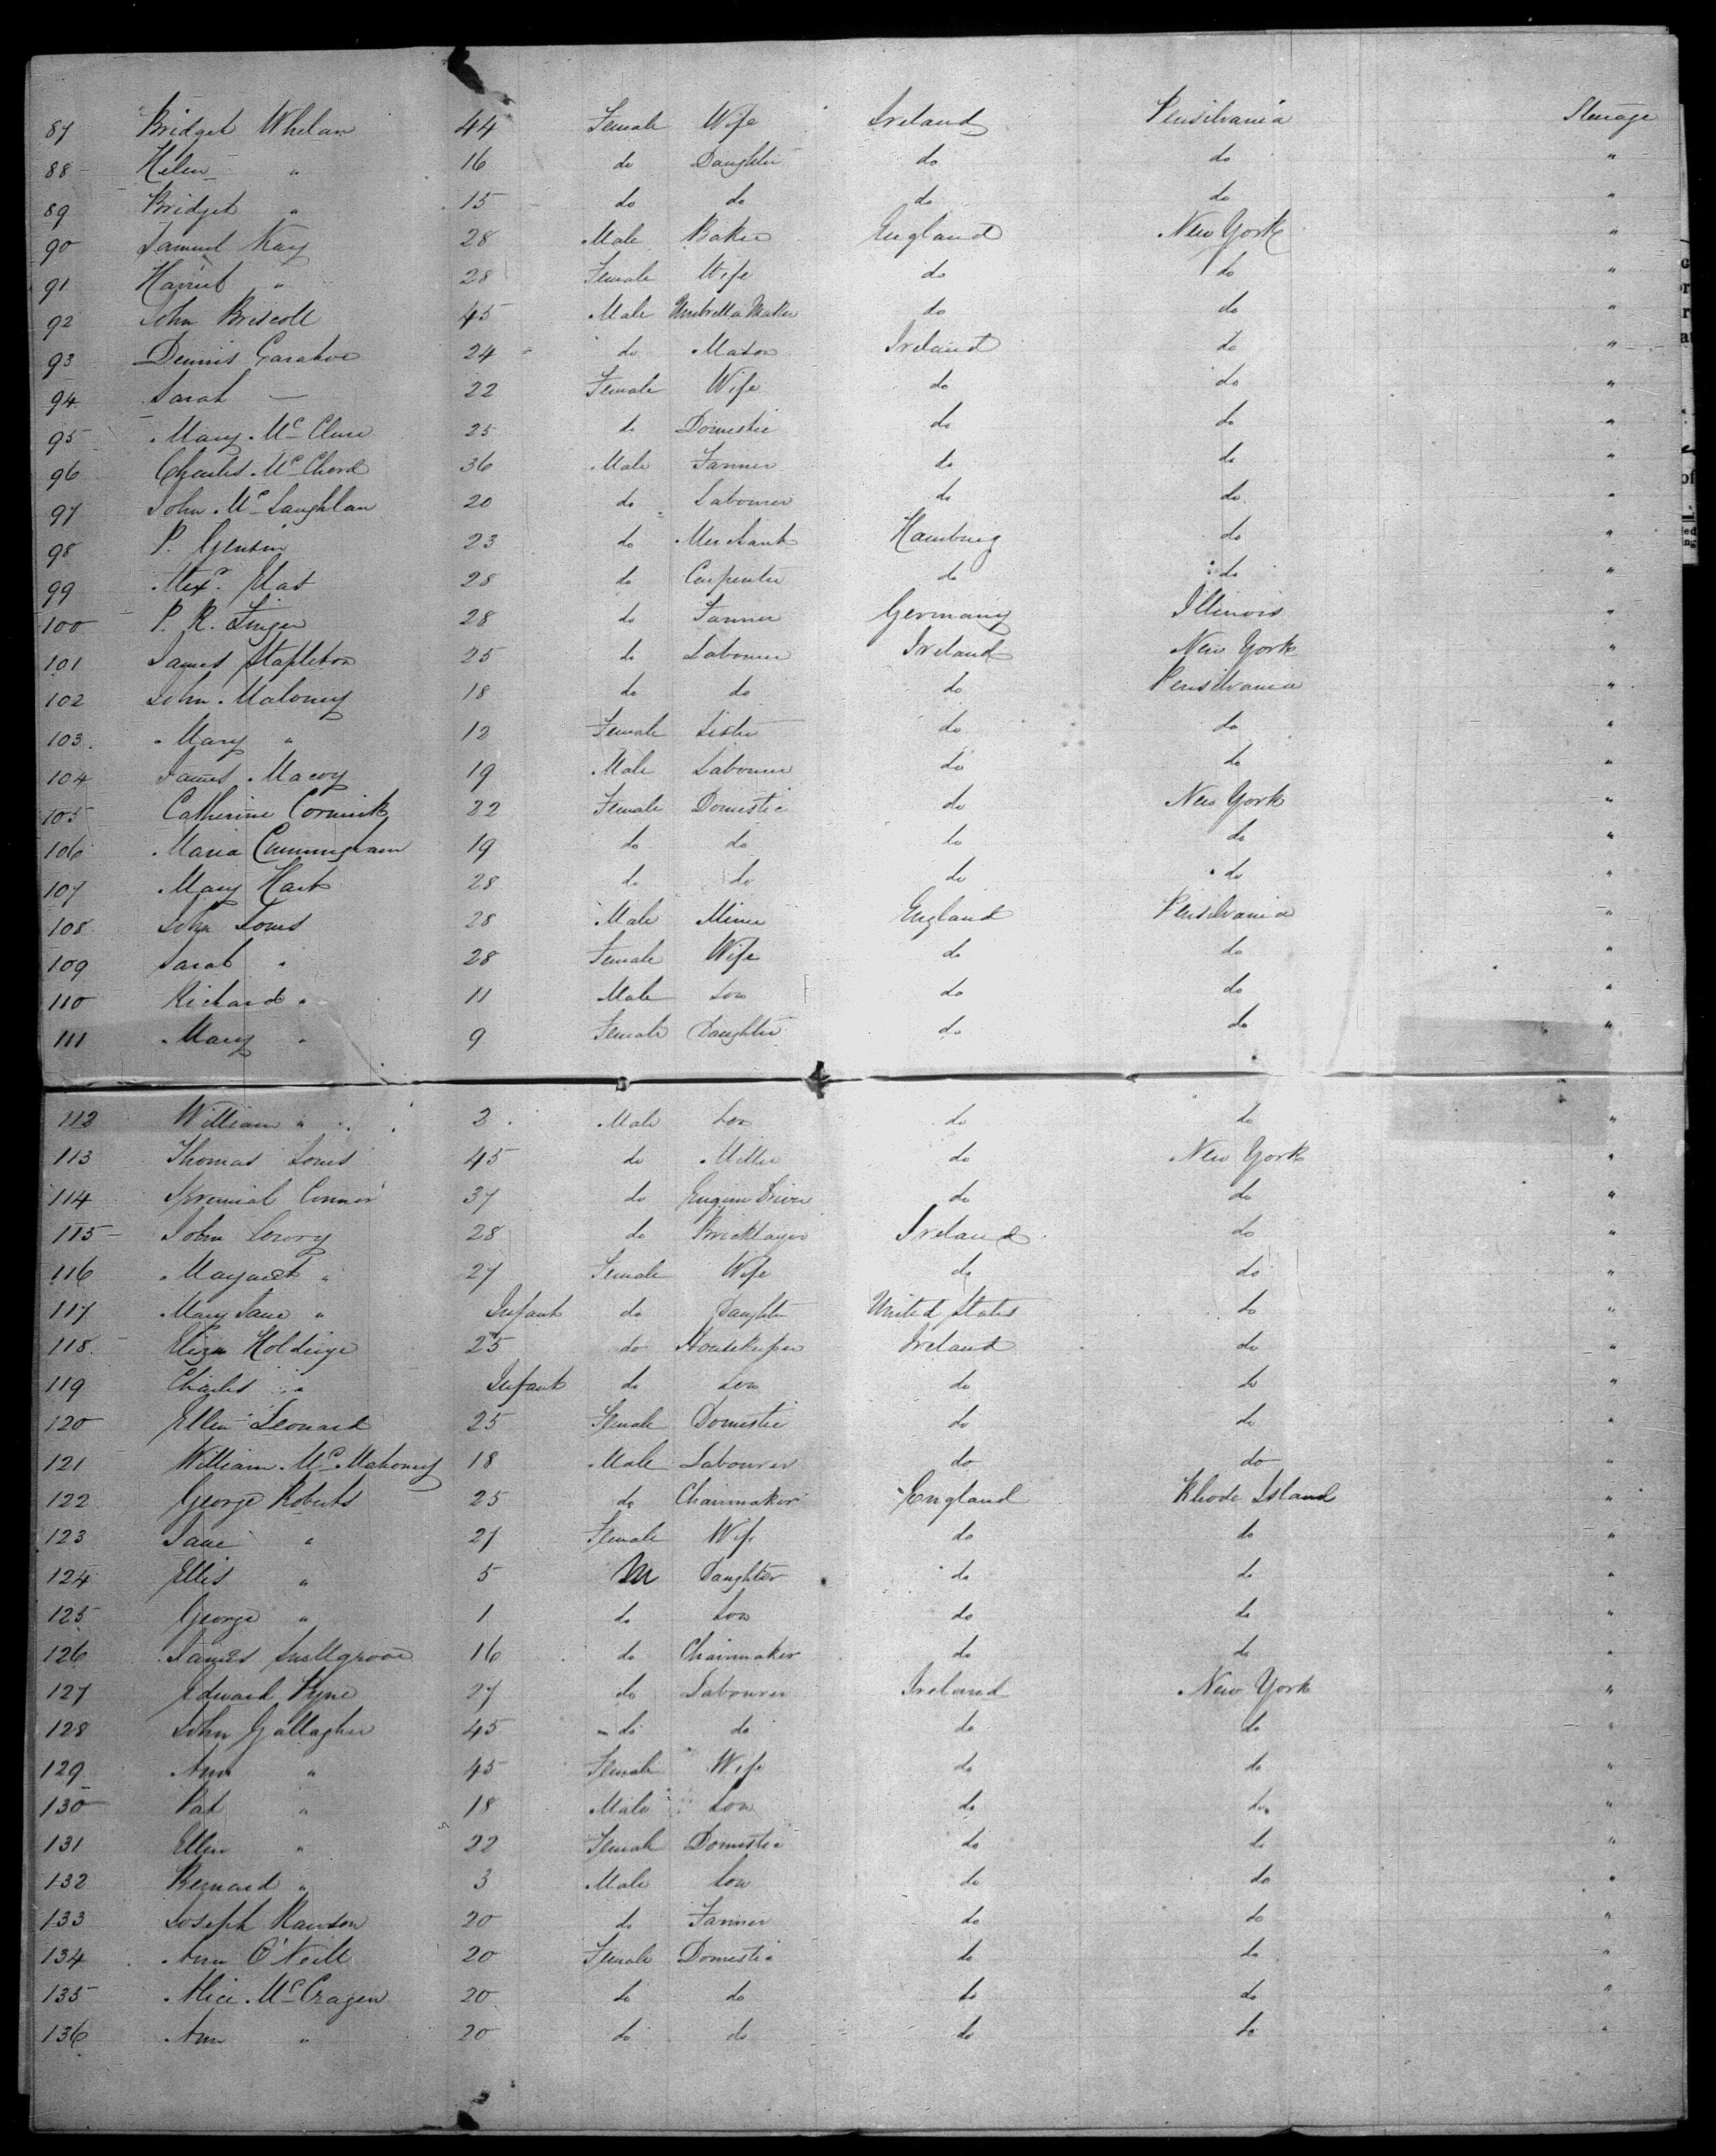 87 Bridget Whelan 44 Female Wife Ireland Pensilvania Sterage
88 Helen " 16 do Daughter do do "
89 Bridget " 15 do do do do "
90 Samuel Kay 28 Male Baker England New York "
91 Harriet " 28 Female Wife do do "
92 John Briscoll 45 Male Umbrella Maker do do "
93 Dennis 24 do Mason Ireland do "
94 Sarah — 22 Female Wife do do "
95 Mary Mc Clure 25 do Domestic do do "
96 Charles Mc Chord 36 Male Farmer do do "
97 John Mc Laughlan 20 do Labourer do do "
98 P. 23 do Merchant Hamburg do "
99 Alexr. 28 do Carpenter do do "
100 P. R. 28 do Farmer Germany Illinois "
101 James Stapleton 25 do Labourer Ireland New York "
102 John Maloney 18 do do do Pensilvania "
103 Mary " 12 Female Sister do do "
104 James Macoy 19 Male Labourer do do "
105 Catherine Cormick 22 Female Domestic do New York "
106 Maria Cunningham 19 do do do do "
107 Mary Hart 28 do do do do "
108 John Jones 28 Male Miner England Pensilvania "
109 Sarah " 28 Female Wife do do "
110 Richard " 11 Male Son do do "
111 Mary " 9 Female Daughter do do "
112 William " 2 Male Son do do "
113 Thomas Jones 45 do Miller do New York "
114 Jeremiah Connor 37 do Engine Driver do do "
115 John Lowry 28 do Bricklayer Ireland do "
116 Margaret " 27 Female Wife do do "
117 Mary Jane " Infant do Daughter United States do "
118 Eliza Holdinge 25 do Housekeeper Ireland do "
119 Charles " Infant do Son do do "
120 Ellen Leonard 25 Female Domestic do do "
121 William Mc Mahoney 18 Male Labourer do do "
122 George Roberts 25 do Chainmaker England Rhode Island "
123 Jane " 27 Female Wife do do "
124 Ellis " 5 M Daughter do do "
125 George " 1 do Son do do "
126 James Snellgrove 16 do Chainmaker do do "
127 Edward Pyne 27 do Labourer Ireland New York "
128 John Gallagher 45 do do do do "
129 Ann " 45 Female Wife do do "
130 Pat " 18 Male Son do do "
131 Ellen " 22 Female Domestic do do "
132 Bernard " 3 Male Son do do "
133 Joseph Rawson 20 do Farmer do do "
134 Ann O'Neill 20 Female Domestic do do "
135 Alice Mc Cragen 20 do do do do "
136 Ann " 20 do do do do "